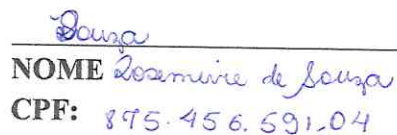 Souza
NOME Rosemeire de Souza
CPF: 875.456.591.04